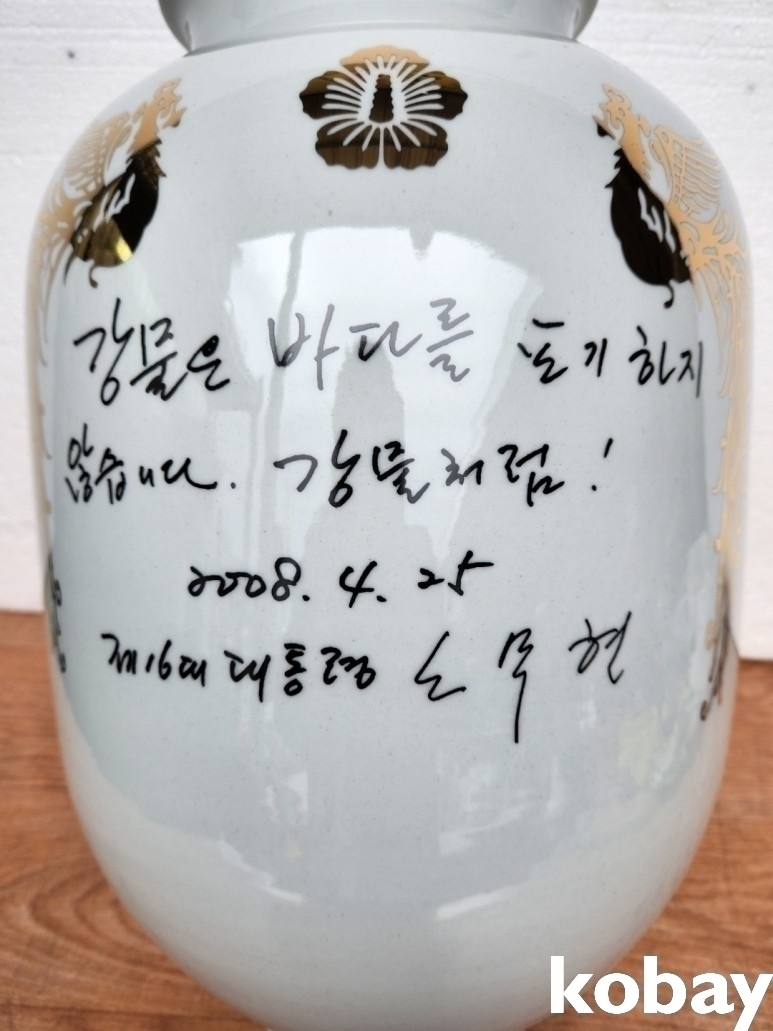 강물은 바다를 포기하지
않습니다. 강물처럼!
2008. 4. 25
제16대 대통령 노무현
kobay